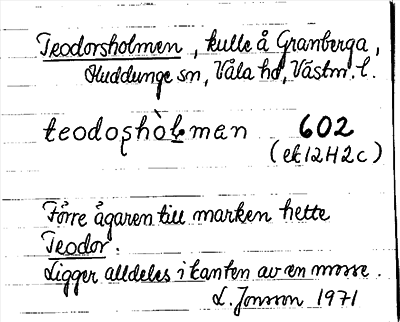 Teodorsholmen, kulle å Granberga,
Huddunge sn, Våla hd, Västm. l.
teodoʂhòɫmen 602
(ek 12H2c)
Förre ägaren till marken hette
Teodor.
Ligger alldeles i kanten av en mosse.
L. Jonsson 1971